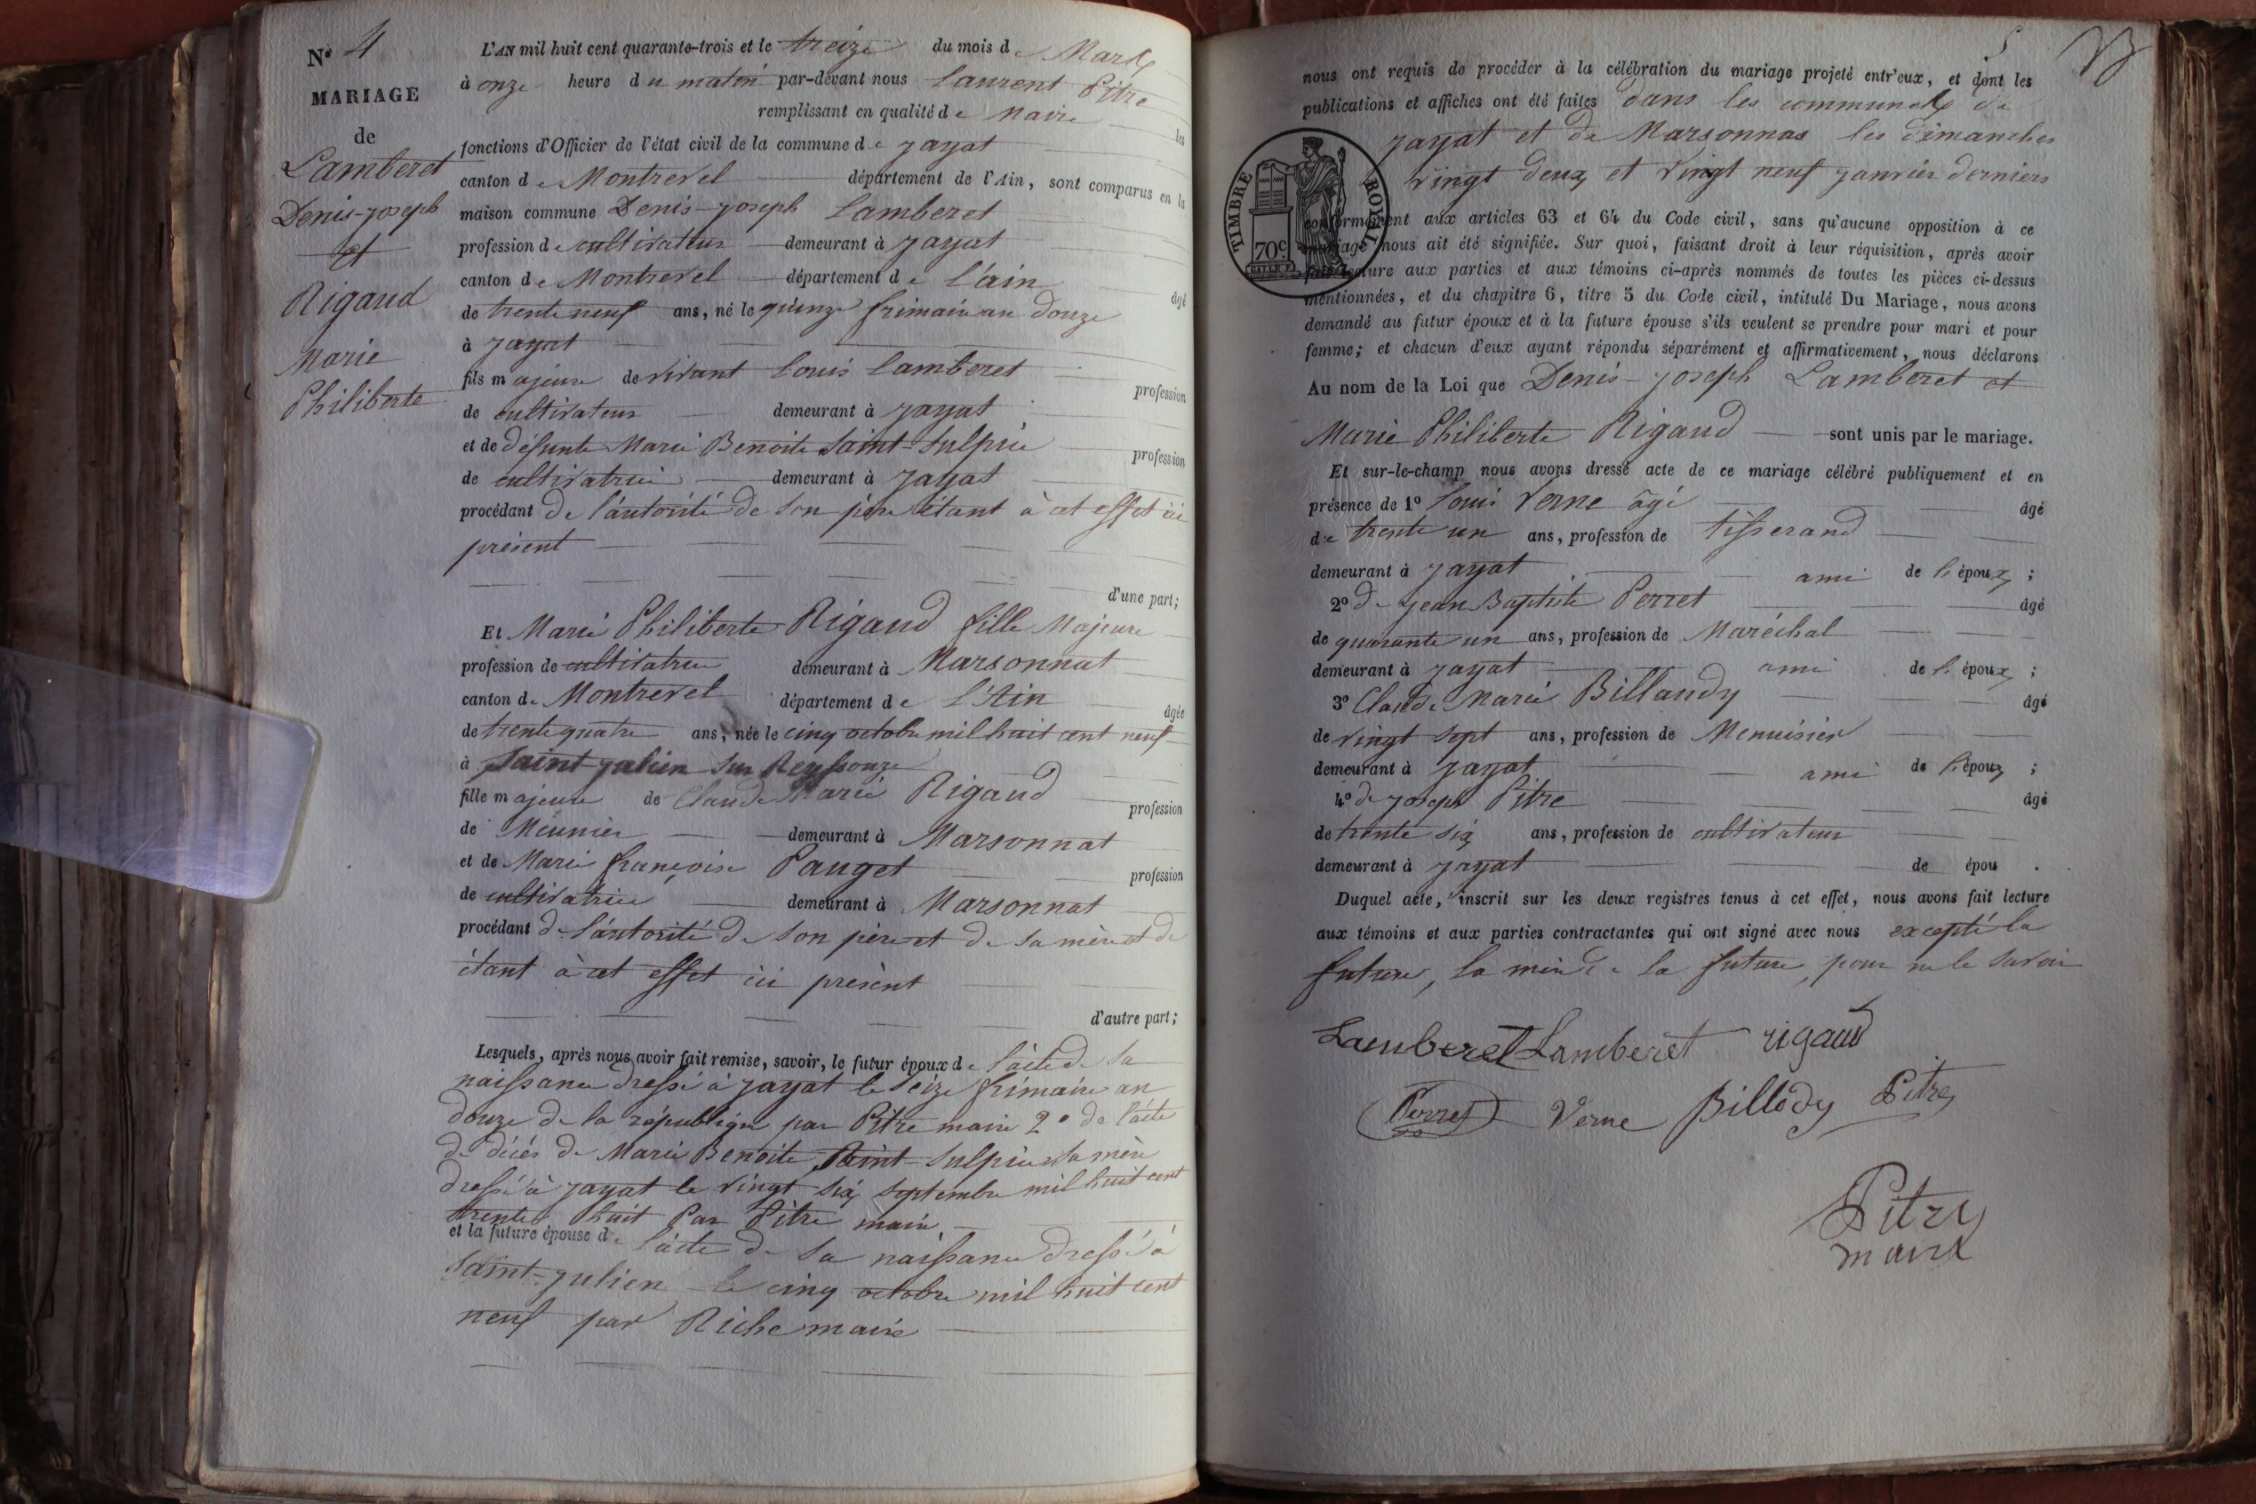 N° 4
MARIAGE
de
Lamberet
Denis-joseph
et
Rigaud
Marie
Philiberte
L'AN mil huit cent quarante-trois et le treize du mois de Mars
à onze heure du matin par-devant nous Laurent Pitre
remplissant en qualité de Maire les
fonctions d'Officier de l'état civil de la commune de jayat
canton de Montrevel département de l'Ain, sont comparus en la
maison commune Denis-joseph Lamberet
profession de cultivateur demeurant à jayat
canton de Montrevel département de L'ain âgé
de trente neuf ans, né le quinze frimaire an douze
à jayat
fils majeur de vivant Louis Lamberet profession
de cultivateur demeurant à jayat
et de défunte Marie Benoite Saint-Sulpice profession
de cultivatrice demeurant à jayat
procédant de l'autorité de son père étant à cet effet ici
présent
d'une part;
Et Marie Philiberte Rigaud fille Majeure
profession de cultivatrice demeurant à Marsonnat
canton de Montrevel département de L'Ain âgée
de trente quatre ans, née le cinq octobre mil huit cent neuf
à Saint julien Sur Reyssouze
fille majeure de Claude Marie Rigaud profession
de Meunier demeurant à Marsonnat
et de Marie françoise Pauget profession
de cultivatrice demeurant à Marsonnat
procédant de l'autorité de son père et de sa mère et de
étant à cet effet ici présent
d'autre part;
Lesquels, après nous avoir fait remise, savoir, le futur époux de l'acte de sa
naissance dressé à jayat le seize frimaire an
douze de la république par Pitre maire 2° de l'acte
de décés de Marie Benoite Saint-Sulpice sa mère
dressé à jayat le vingt six septembre mil huit cent
trente huit Par Pitre maire
et la future épouse de l'acte de sa naissance dressé à
Saint-julien le cinq octobre mil huit cent
neuf par Riche maire
5
nous ont requis de procéder à la célébration du mariage projeté entr'eux, et dont les
publications et affiches ont été faites dans les communes de
jayat et de Marsonnas les dimanches
vingt deux et vingt neuf janvier derniers
TIMBRE ROYAL
70c
conformément aux articles 63 et 64 du Code civil, sans qu'aucune opposition à ce
mariage nous ait été signifiée. Sur quoi, faisant droit à leur réquisition, après avoir
fait lecture aux parties et aux témoins ci-après nommés de toutes les pièces ci-dessus
mentionnées, et du chapitre 6, titre 5 du Code civil, intitulé Du Mariage, nous avons
demandé au futur époux et à la future épouse s'ils veulent se prendre pour mari et pour
femme; et chacun d'eux ayant répondu séparément et affirmativement, nous déclarons
Au nom de la Loi que Denis-joseph Lamberet et
Marie Philiberte Rigaud sont unis par le mariage.
Et sur-le-champ nous avons dressé acte de ce mariage célébré publiquement et en
présence de 1° Louis Verne âgé âgé
de trente un ans, profession de tisserand
demeurant à jayat ami de l'époux;
2° de jean Baptiste Perret âgé
de quarante un ans, profession de Maréchal
demeurant à jayat ami de l'époux;
3° Claude Marie Billaudy âgé
de vingt sept ans, profession de Menuisier
demeurant à jayat ami de l'époux;
4° de joseph Pitre âgé
de trente six ans, profession de cultivateur
demeurant à jayat de épou .
Duquel acte, inscrit sur les deux registres tenus à cet effet, nous avons fait lecture
aux témoins et aux parties contractantes qui ont signé avec nous excepté la
future, la mère de la future, pour ne le savoir
Lamberet Lamberet rigaud
Perret Verne Billody Pitre
Pitre
maire